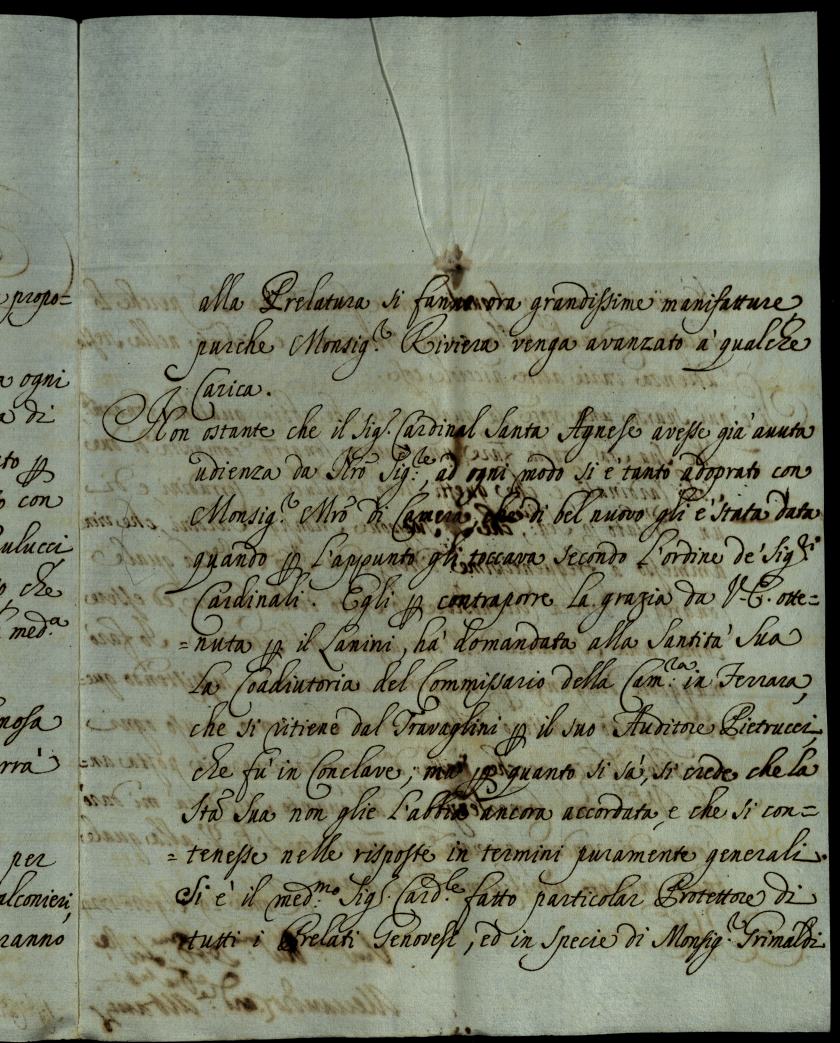 propo=
a ogni
a di
to ꝑ
o con
ulucci
o che
med.ª
mosa
rrà
per
alconieri,
ranno
alla Prelatura si fanno ora grandissime manifatture,
purche Monsig.r Riviera venga avanzato à qualche
Carica.
Non ostante che il Sig.r Cardinal Santa Agnese avesse già avuta
udienza da Nro Sig.re, ad ogni modo si è tanto adoprato con
Monsig.r Mro di Camera, che di bel nuovo gli è stata data
quando ꝑ l'appunto gli toccava secondo l'ordine de' Sig.ri
Cardinali. Egli ꝑ contraporre la grazia da V.E. otte=
=nuta ꝑ il Lanini, hà domandata alla Santità Sua
la Coadiutoria del Commissario della Cam.ra in Ferrara,
che si ritiene dal Travaglini ꝑ il suo Auditore Pietrucci,
che fù in Conclave; mà ꝑ quanto si sà, si crede che la
Stà Sua non glie l'abbia ancora accordata, e che si con=
=tenesse nelle risposte in termini puramente generali.
Si è il med.mo Sig.r Card.le fatto particolar Protettore di
tutti i Prelati Genovesi, ed in specie di Monsig.r Grimaldi